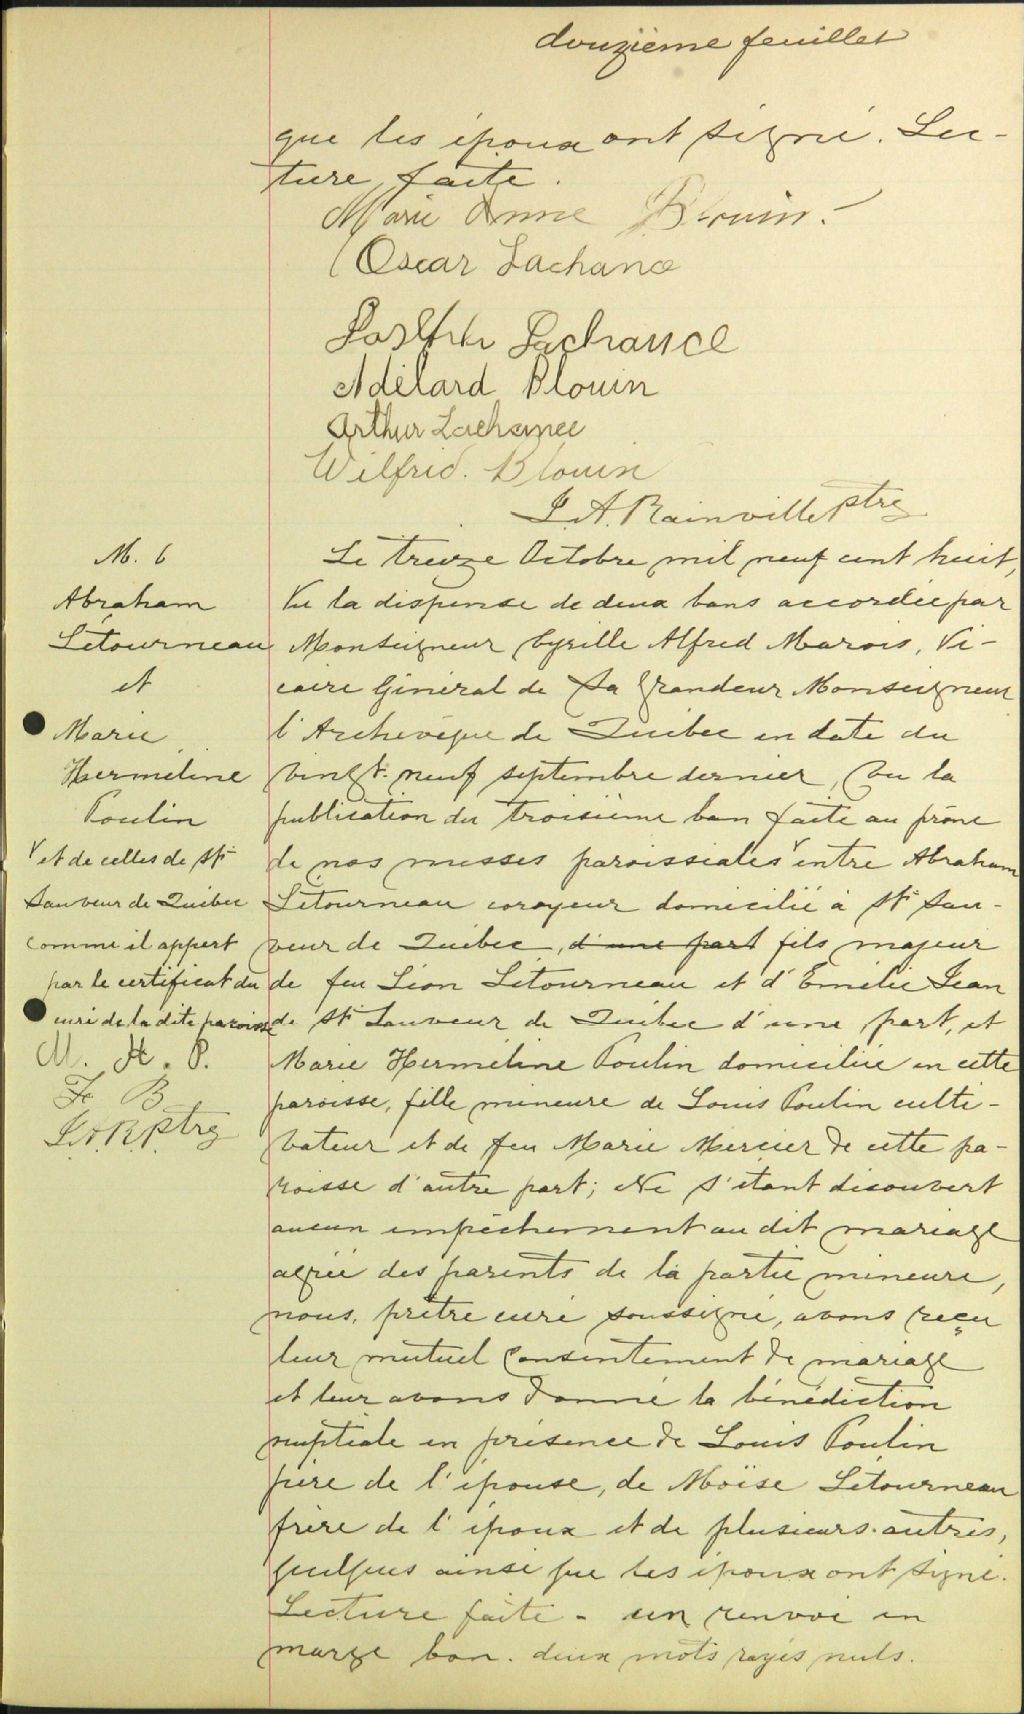 douzième feuillet
que les époux ont signé. Lec-
ture faite.
Marie Anne Blouin.
Oscar Lachance
Joseph Lachance
Adélard Blouin
Arthur Lachance
Wilfrid. Blouin
J. A. Rainville Ptre
M. 6
Abraham
Létourneau
et
Marie
Herméline
Poulin
V et de celles de St
Sauveur de Québec
comme il appert
par le certificat du
curé de la dite paroisse
M. H. P.
J. A. R. Ptre
Le treize Octobre mil neuf cent huit,
Vu la dispense de deux bans accordée par
Monseigneur Cyrille Alfred Marois, Vi-
caire Général de Sa Grandeur Monseigneur
l'Archevêque de Québec en date du
vingt-neuf septembre dernier, vu la
publication du troisième ban faite au prône
de nos messes paroissiales V entre Abraham
Létourneau corroyeur domicilié à St Sau-
veur de Québec, d'une part fils majeur
de feu Léon Létourneau et d'Emélie Jean
de St Sauveur de Québec d'une part, et
Marie Herméline Poulin domiciliée en cette
paroisse, fille mineure de Louis Poulin culti-
vateur et de feu Marie Mercier de cette pa-
roisse d'autre part; Ne s'étant découvert
aucun empêchement au dit mariage
agréé des parents de la partie mineure,
nous, prêtre curé soussigné, avons reçu
leur mutuel consentement de mariage
et leur avons donné la bénédiction
nuptiale en présence de Louis Poulin
père de l'épouse, de Moïse Létourneau
frère de l'époux et de plusieurs autres,
quelques ainsi que les époux ont signé.
Lecture faite - un renvoi en
marge bon. deux mots rayés nuls.